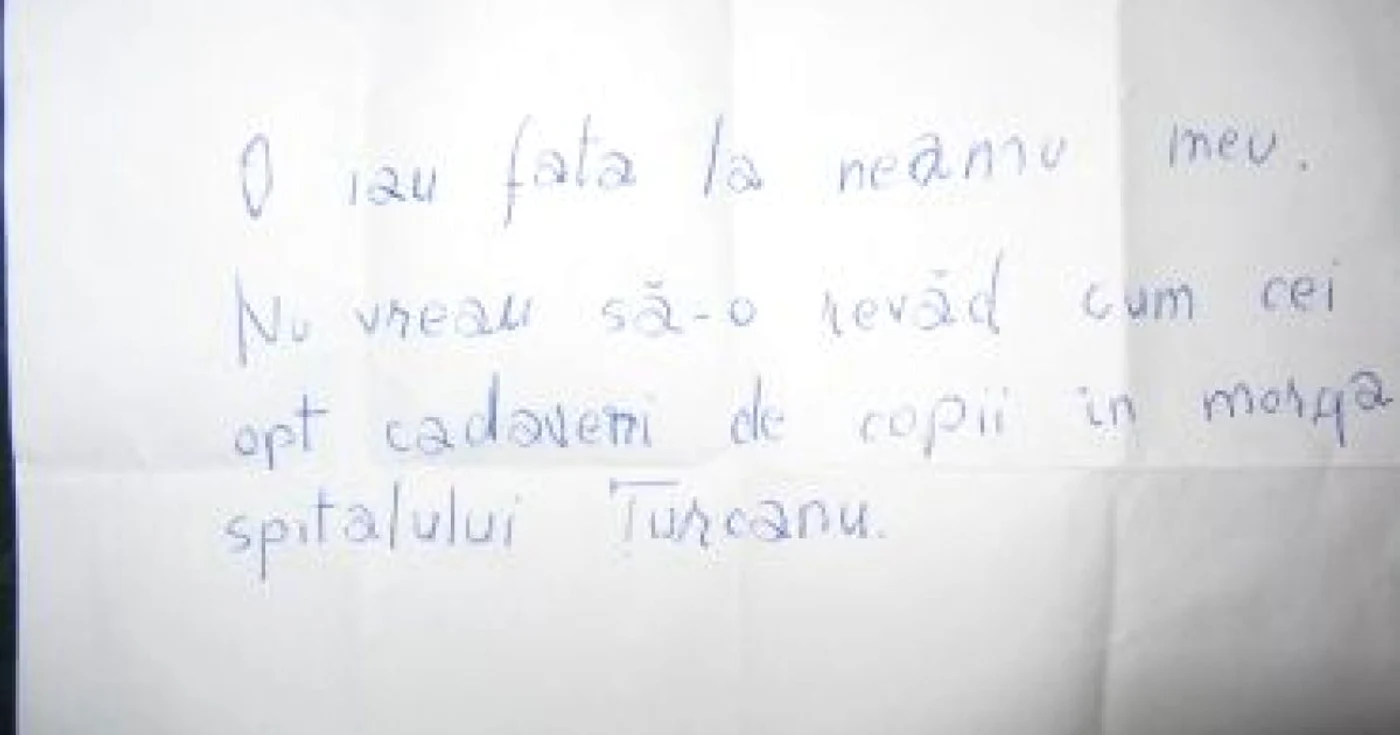 O iau fata la neamu meu.
Nu vreau să-o revăd cum cei
opt cadaveri de copii in morga
spitalului Țurcanu.